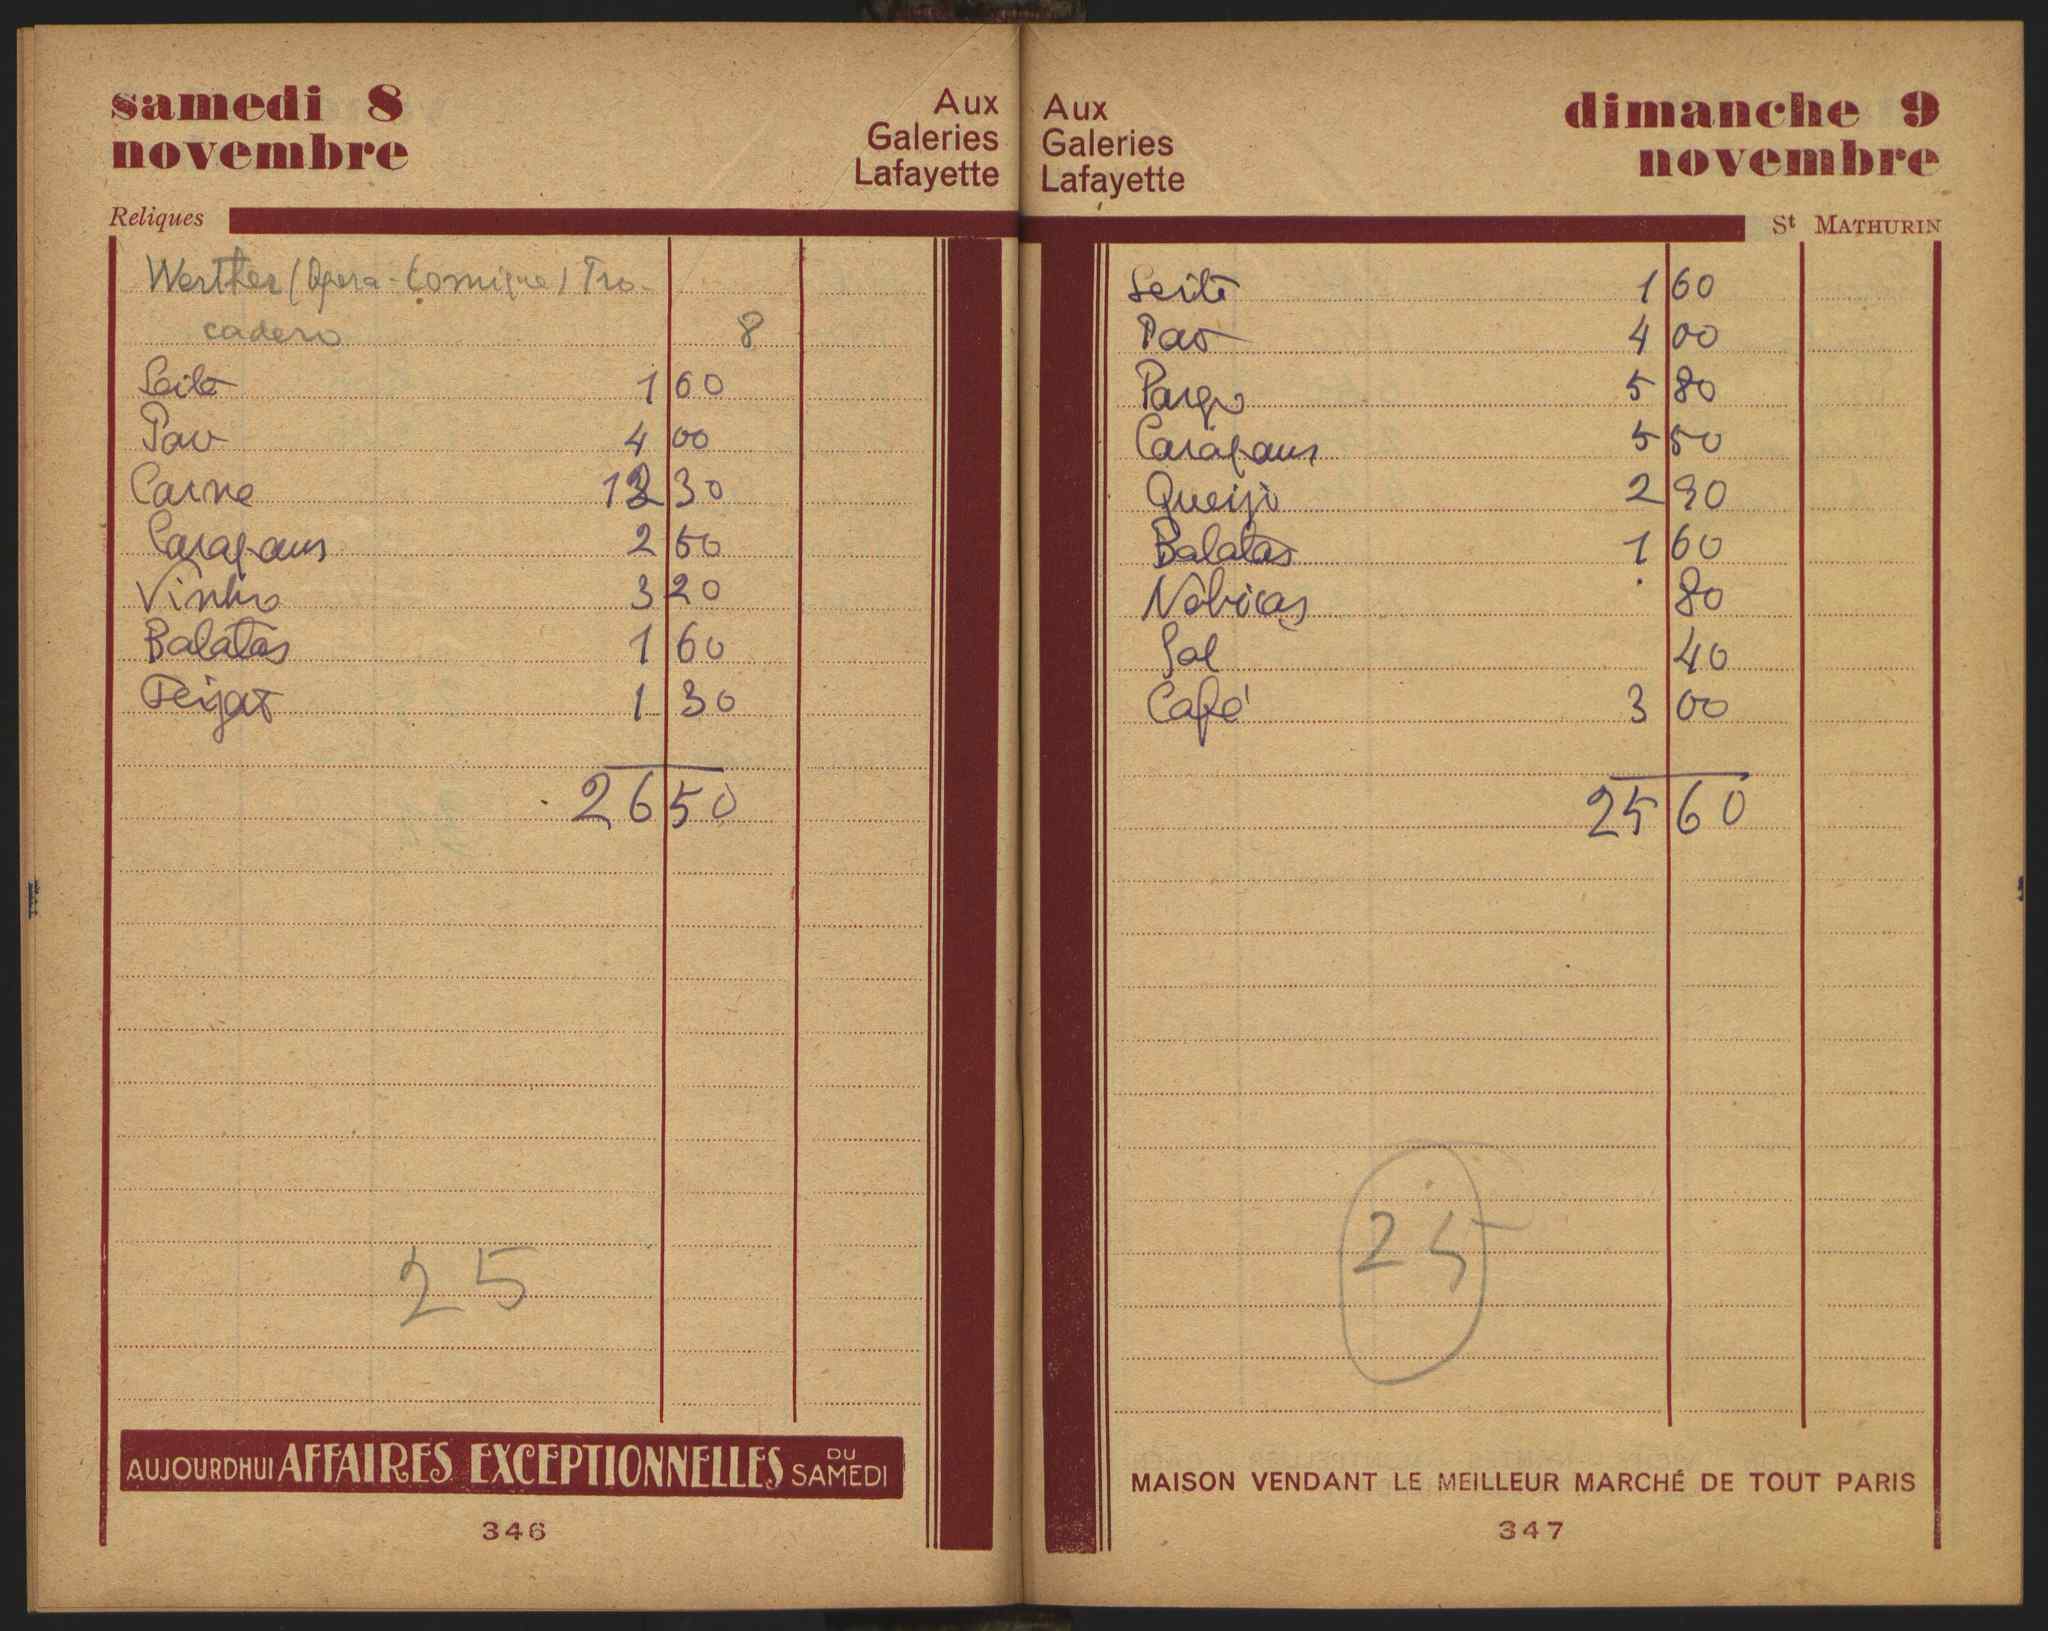 samedi 8
novembre
Aux
Galeries
Lafayette
Reliques
Werther (Opera-Comique) Tro-
cadero 8
Leite 1 60
Pão 4 00
Carne 12 30
2 50
Vinho 3 20
Batatas 1 60
Feijão 1 30
26 50
25
AUJOURDHUI AFFAIRES EXCEPTIONNELLES DU SAMEDI
346
Aux
Galeries
Lafayette
dimanche 9
novembre
St MATHURIN
Leite 1 60
Pão 4 00
Pargo 5 80
5 50
Queijo 2 90
Batatas 1 60
80
Sal 40
Café 3 00
25 60
25
MAISON VENDANT LE MEILLEUR MARCHÉ DE TOUT PARIS
347